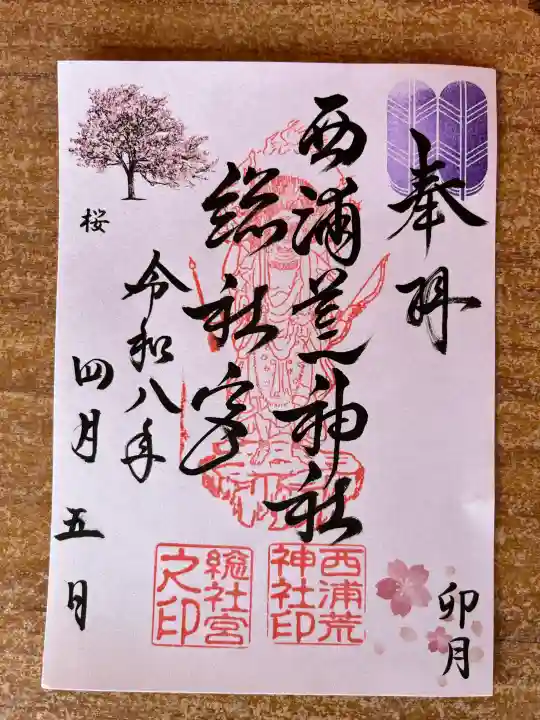 奉拝
卯月
西浦荒神社
総社宮
令和八年
四月五日
桜
西浦荒
神社印
総社宮
之印